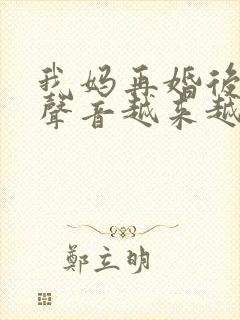 我妈再婚后
聲音越来越
鄭立明